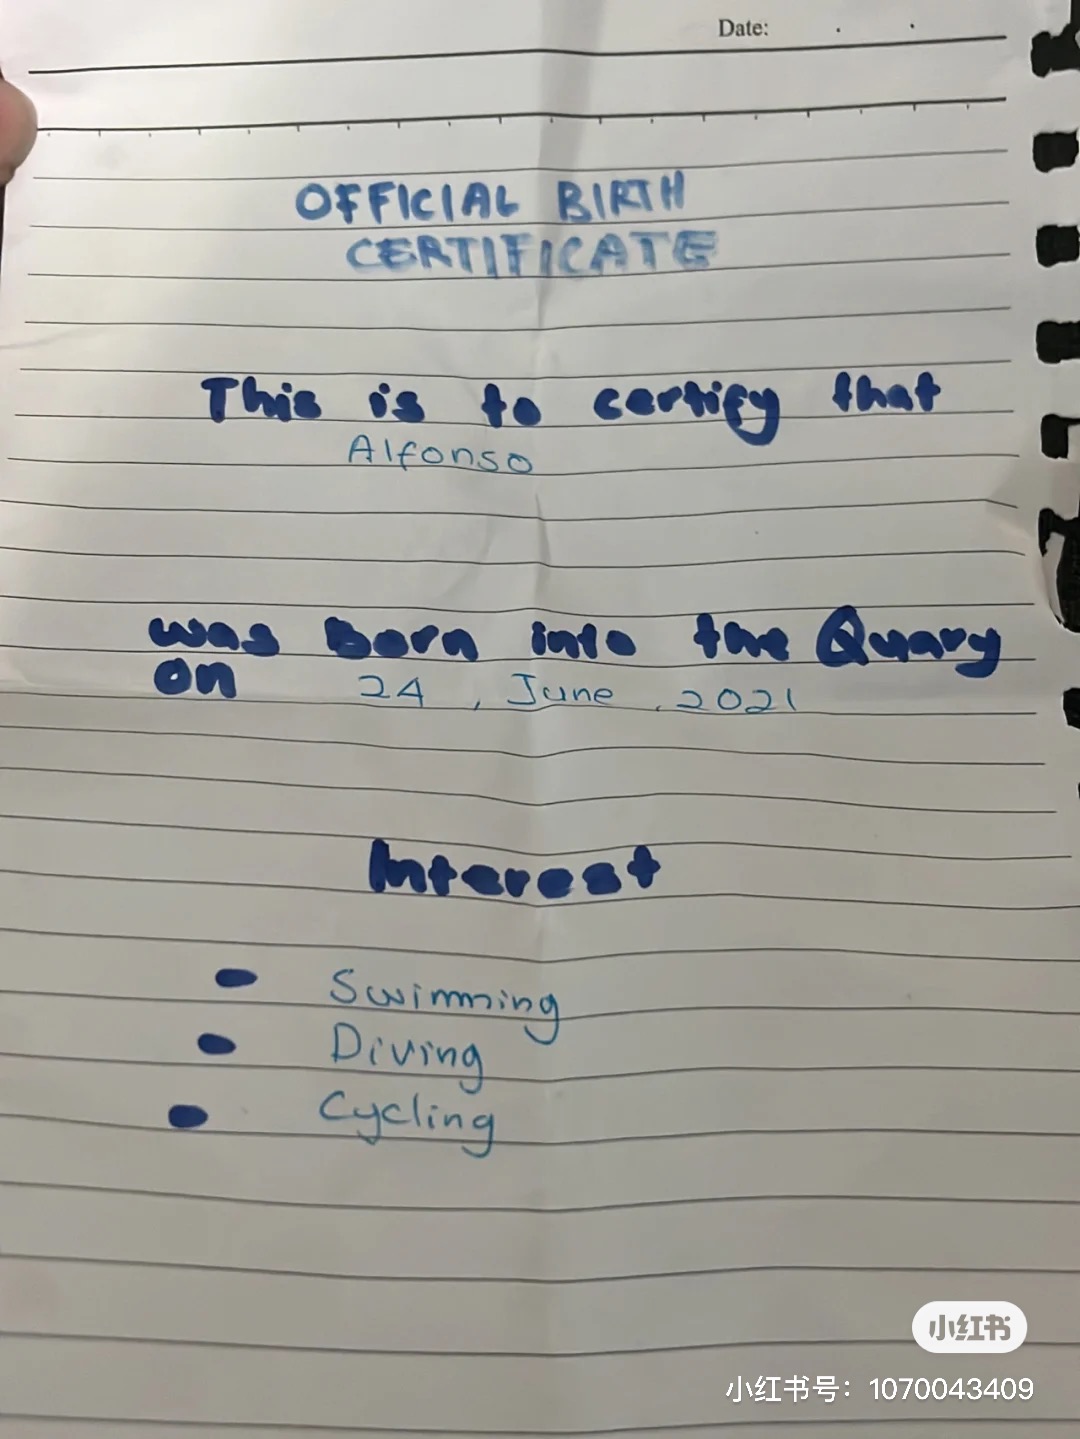 Date:
OFFICIAL BIRTH
CERTIFICATE
This is to certify that
Alfonso
was Born into the Quary
on 24, June, 2021
Interest
Swimming
Diving
Cycling
小红书
小红书号：1070043409